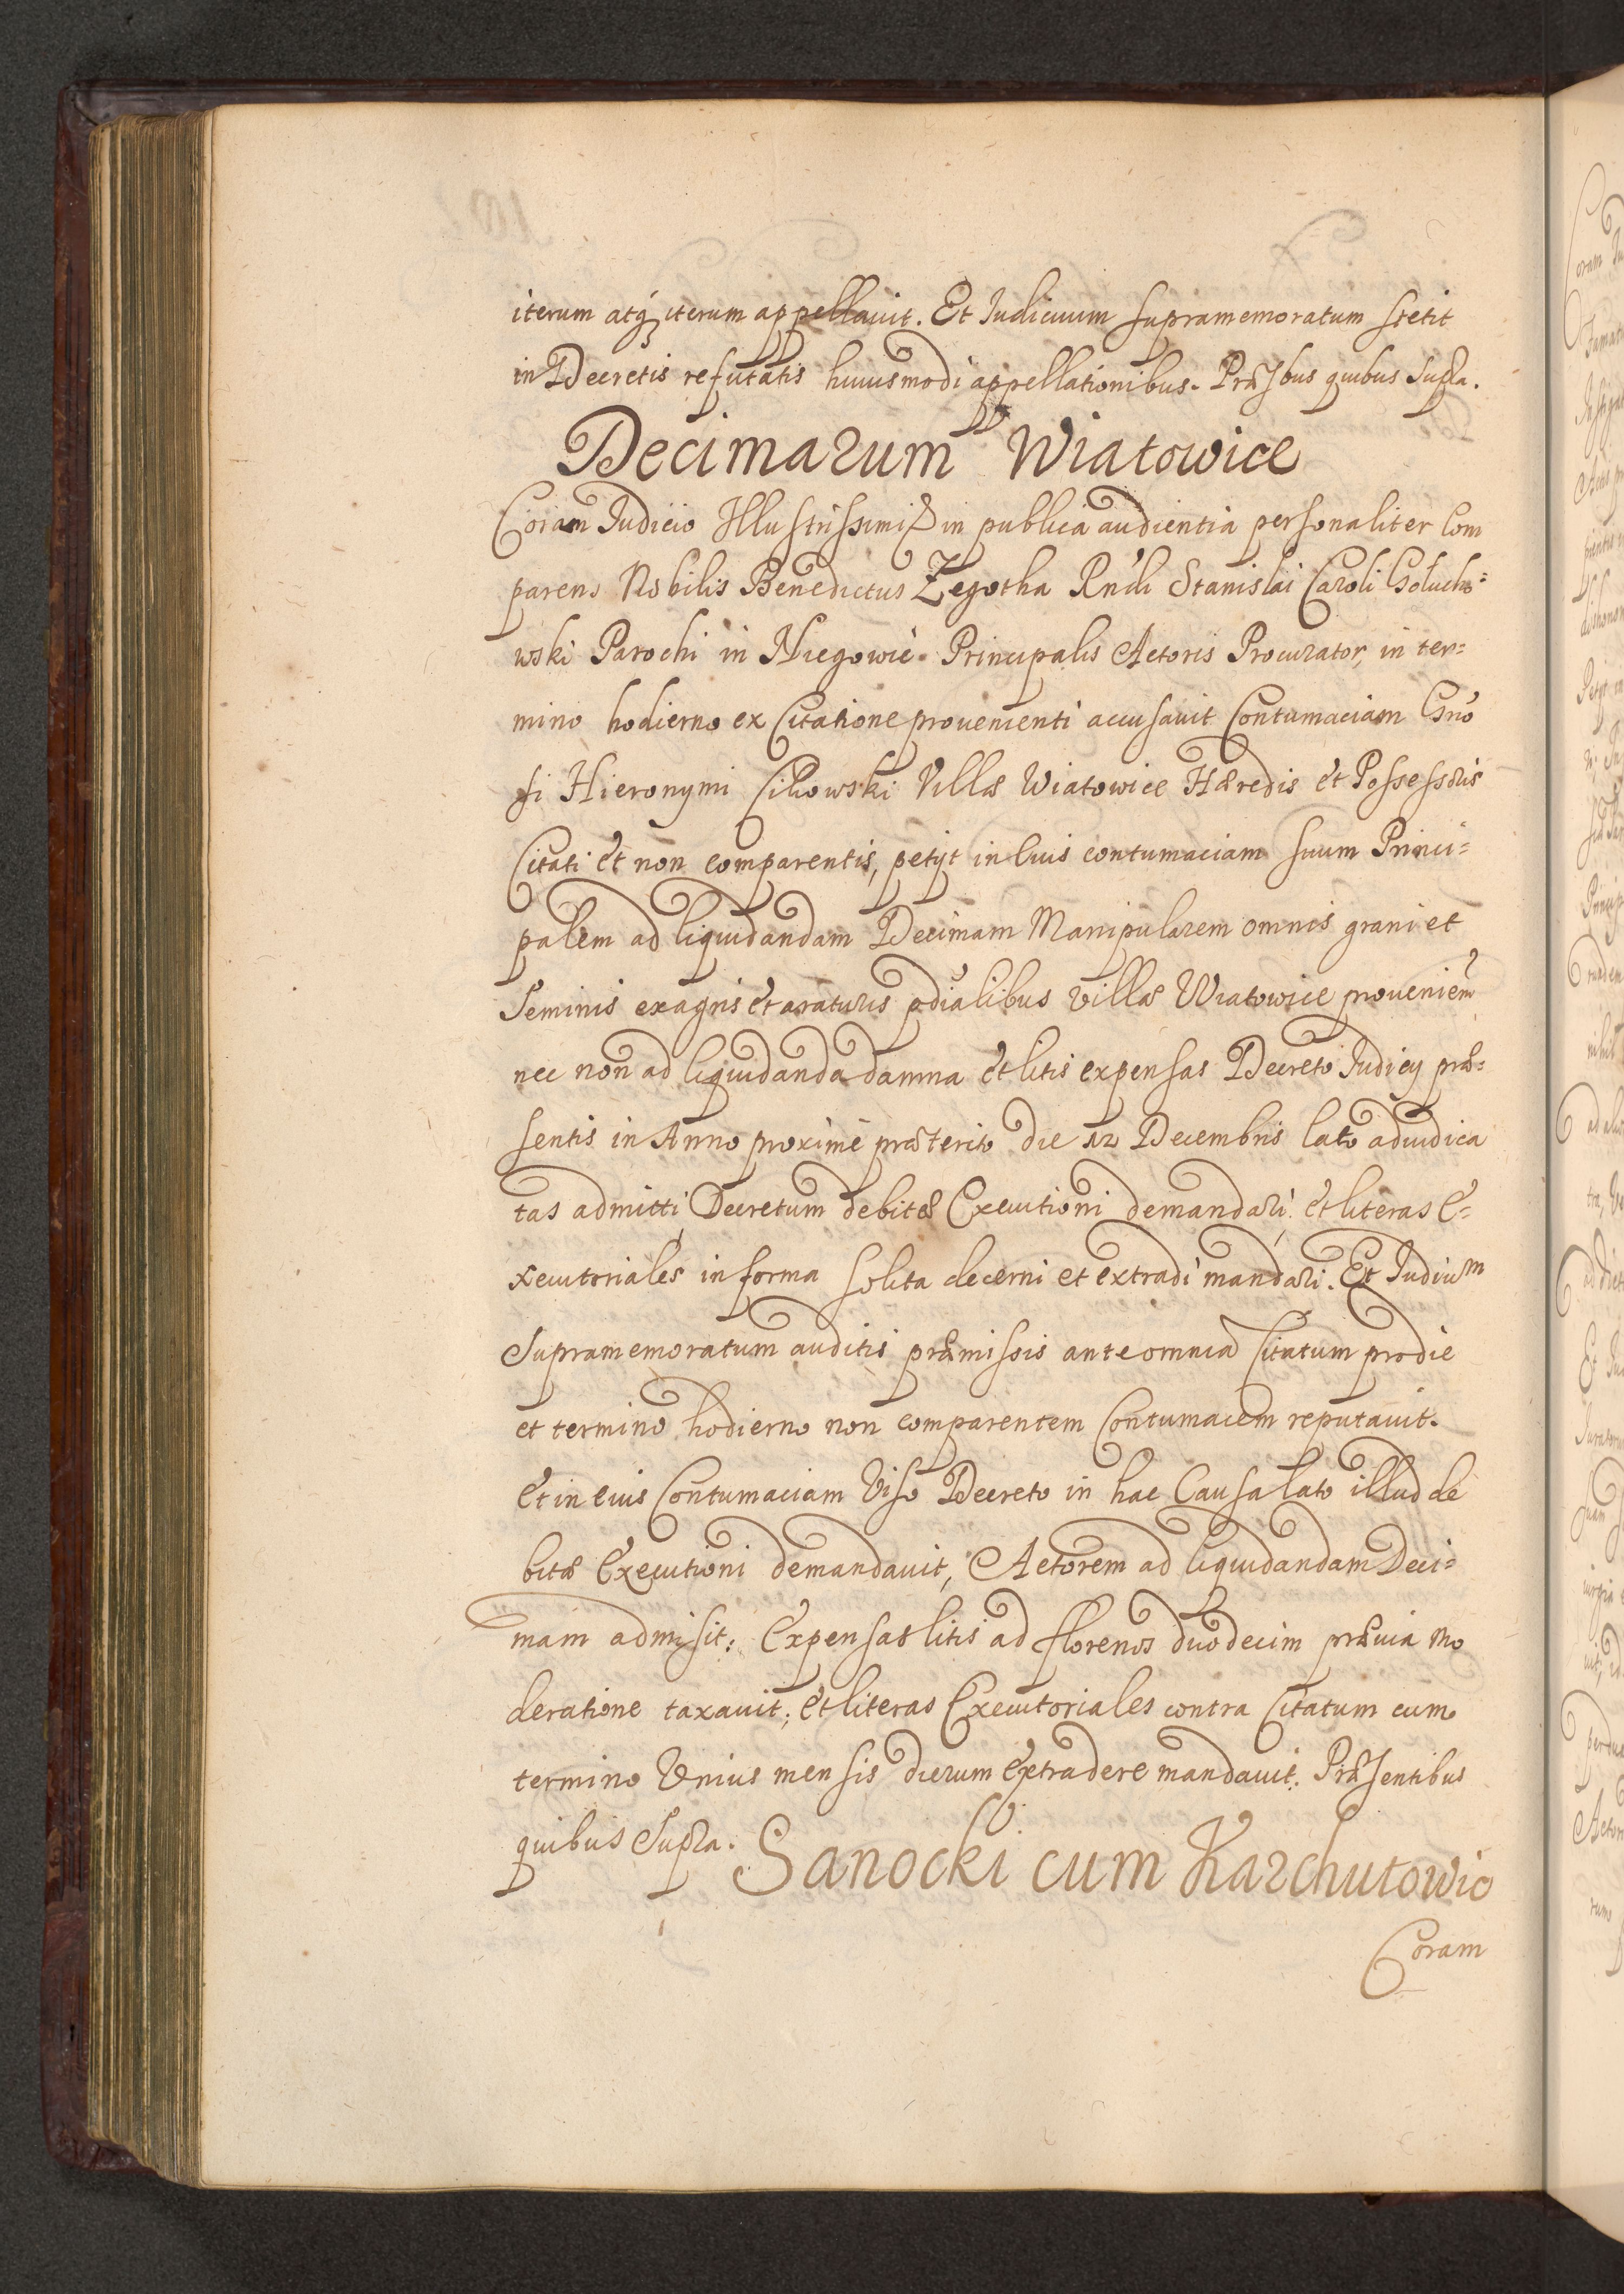 iterum atq iterum appellauit. Et Iudicium supramemoratum stetit
in Decretis refutatis huiusmodi appellationibus. Præsbus quibus Supra.
Decimarum Wiatowice
Coram Iudicio Illustrissimi in publica audientia personaliter Com
parens Nobilis Benedictus Zegotha Rndi Stanislai Caroli Gołucho=
wski Parochi in Niegowić Principalis Actoris Procurator, in ter=
mino hodierno ex Citatione prouenienti accusauit Contumaciam Gno
si Hieronymi Cikowski Villæ Wiatowice Hæredis et Possessoris
Citati et non comparentis, petijt in eius contumaciam suum Princi=
palem ad liquidandam Decimam Manipularem omnis grani et
Seminis ex agris et araturis prædialibus villæ Wiatowice prouenien
nec non ad liquidanda damna et litis expensas Decreto Iudicij præ=
sentis in Anno proximè præterito die 12 Decembris lato adiudica
tas admitti, Decretum debitæ Executioni demandari, et literas E=
xecutoriales in forma solita decerni et extradi mandari. Et Iudicium
Supramemoratum auditis præmissis ante omnia Citatum pro die
et termino hodierno non comparentem Contumacem reputauit.
Et in eius Contumaciam Viso Decreto in hac Causa lato illud de
bitæ Executioni demandauit, Actorem ad liquidandam Deci=
mam admisit: Expensas litis ad florenos duodecim præuia mo
deratione taxauit; et literas Executoriales contra Citatum cum
termino Vnius mensis dierum extradere mandauit. Præsentibus
quibus Supra. Sanocki cum Karchutowic
Coram